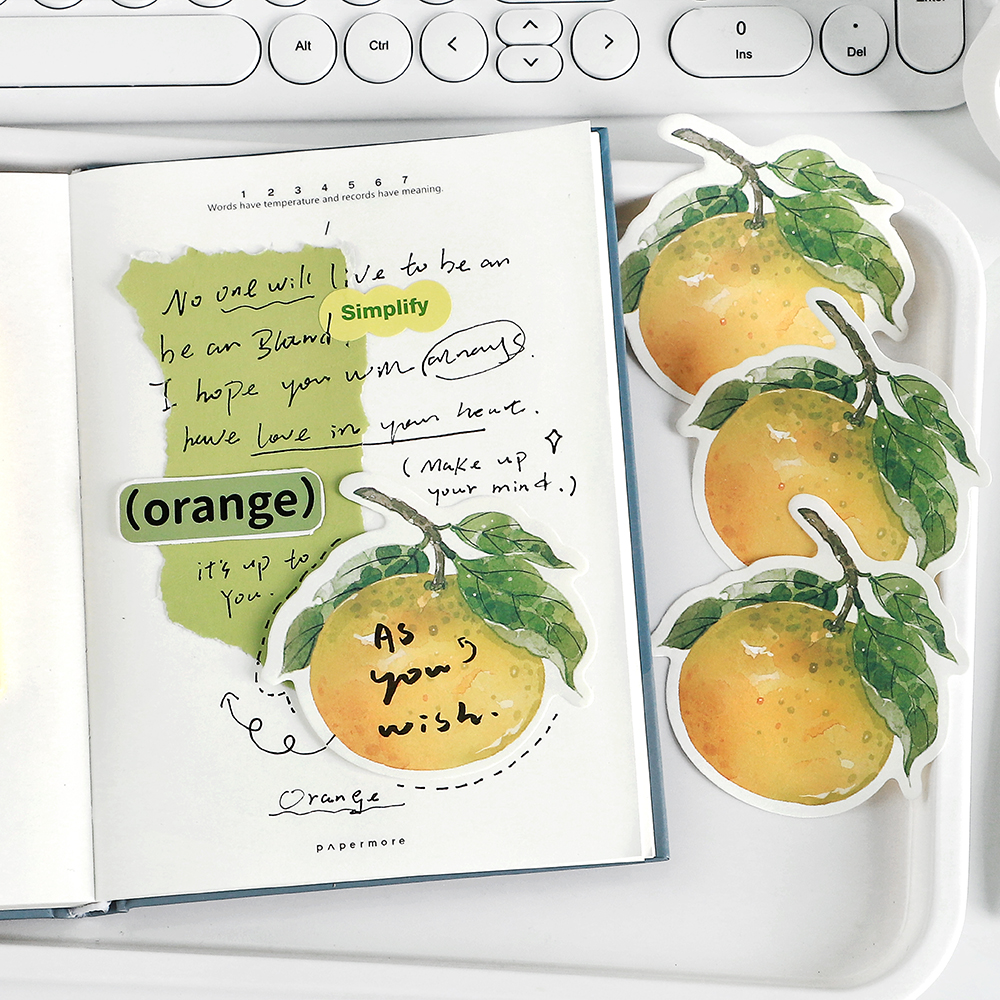 Enter
Alt
Ctrl
<
>
0
Ins
.
Del
1 2 3 4 5 6 7
Words have temperature and records have meaning.
No one will live to be an
Simplify
be an
I hope you will always.
have love in your heart.
(Make up
your mind.)
(orange)
it's up to
you.
As
you
wish.
Orange
papermore